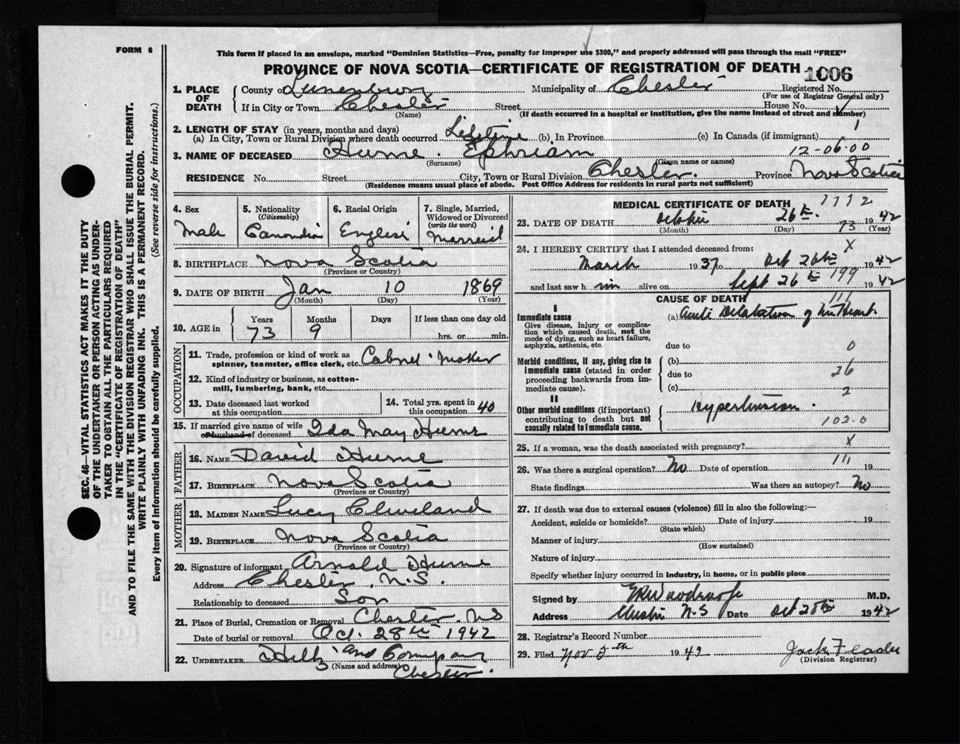 FORM 6
This form if placed in an envelope, marked "Dominion Statistics—Free, penalty for improper use $300," and properly addressed will pass through the mail "FREE"
PROVINCE OF NOVA SCOTIA—CERTIFICATE OF REGISTRATION OF DEATH 1006
1. PLACE OF DEATH
County of Lunenburg Municipality of Chester Registered No.
(For use of Registrar General only)
If in City or Town Chester Street House No.
(Name) (If death occurred in a hospital or institution, give the name instead of street and number)
2. LENGTH OF STAY (in years, months and days)
(a) In City, Town or Rural Division where death occurred Lifetime (b) In Province (c) In Canada (if immigrant) 1
3. NAME OF DECEASED Hume Ephriam 12-06-00
(Surname) (Given name or names)
RESIDENCE No. Street City, Town or Rural Division Chester Province Nova Scotia
(Residence means usual place of abode. Post Office Address for residents in rural parts not sufficient)
4. Sex
Male
5. Nationality
(Citizenship)
Canadian
6. Racial Origin
English
7. Single, Married, Widowed or Divorced
(write the word)
Married
8. BIRTHPLACE Nova Scotia
(Province or Country)
9. DATE OF BIRTH Jan 10 1869
(Month) (Day) (Year)
10. AGE in Years Months Days If less than one day old
73 9 hrs. or min.
OCCUPATION
11. Trade, profession or kind of work as spinner, teamster, office clerk, etc. Cabnet Maker
12. Kind of industry or business, as cotton-mill, lumbering, bank, etc.
13. Date deceased last worked at this occupation
14. Total yrs. spent in this occupation 40
15. If married give name of wife or husband of deceased Ida May Hume
FATHER
16. NAME David Hume
17. BIRTHPLACE Nova Scotia
(Province or Country)
MOTHER
18. MAIDEN NAME Lucy Cleveland
19. BIRTHPLACE Nova Scotia
(Province or Country)
20. Signature of informant Arnold Hume
Address Chester N.S.
Relationship to deceased Son
21. Place of Burial, Cremation or Removal Chester N.S
Date of burial or removal Oct. 28th 1942
22. UNDERTAKER and Company
(Name and address)
Chester.
MEDICAL CERTIFICATE OF DEATH
23. DATE OF DEATH 26th 73 1942
(Month) (Day) (Year)
24. I HEREBY CERTIFY that I attended deceased from: X
March 1937 to Oct 26th 1942
and last saw h im alive on Sept 26th 199 1942
CAUSE OF DEATH
I
Immediate cause
Give disease, injury or complication which caused death, not the mode of dying, such as heart failure, asphyxia, asthenia, etc.
(a) Dilatation of Heart
due to 0
Morbid conditions, if any, giving rise to immediate cause (stated in order proceeding backwards from immediate cause).
(b) 26
due to
(c) 2
II
Other morbid conditions (if important) contributing to death but not causally related to immediate cause.
Hypertension.
102.0
25. If a woman, was the death associated with pregnancy? X
26. Was there a surgical operation? No Date of operation 111 19
State findings Was there an autopsy? No
27. If death was due to external causes (violence) fill in also the following:—
Accident, suicide or homicide? Date of injury 19
(State which)
Manner of injury
(How sustained)
Nature of injury
Specify whether injury occurred in industry, in home, or in public place
Signed by M.D.
Address Chester N.S Date Oct 28th 1942
28. Registrar's Record Number
29. Filed Nov 2th 1942
(Division Registrar)
SEC. 46—VITAL STATISTICS ACT MAKES IT THE DUTY
OF THE UNDERTAKER OR PERSON ACTING AS UNDERTAKER TO OBTAIN ALL THE PARTICULARS REQUIRED
IN THE "CERTIFICATE OF REGISTRATION OF DEATH"
AND TO FILE THE SAME WITH THE DIVISION REGISTRAR WHO SHALL ISSUE THE BURIAL PERMIT.
WRITE PLAINLY WITH UNFADING INK. THIS IS A PERMANENT RECORD.
Every item of information should be carefully supplied. (See reverse side for instructions.)